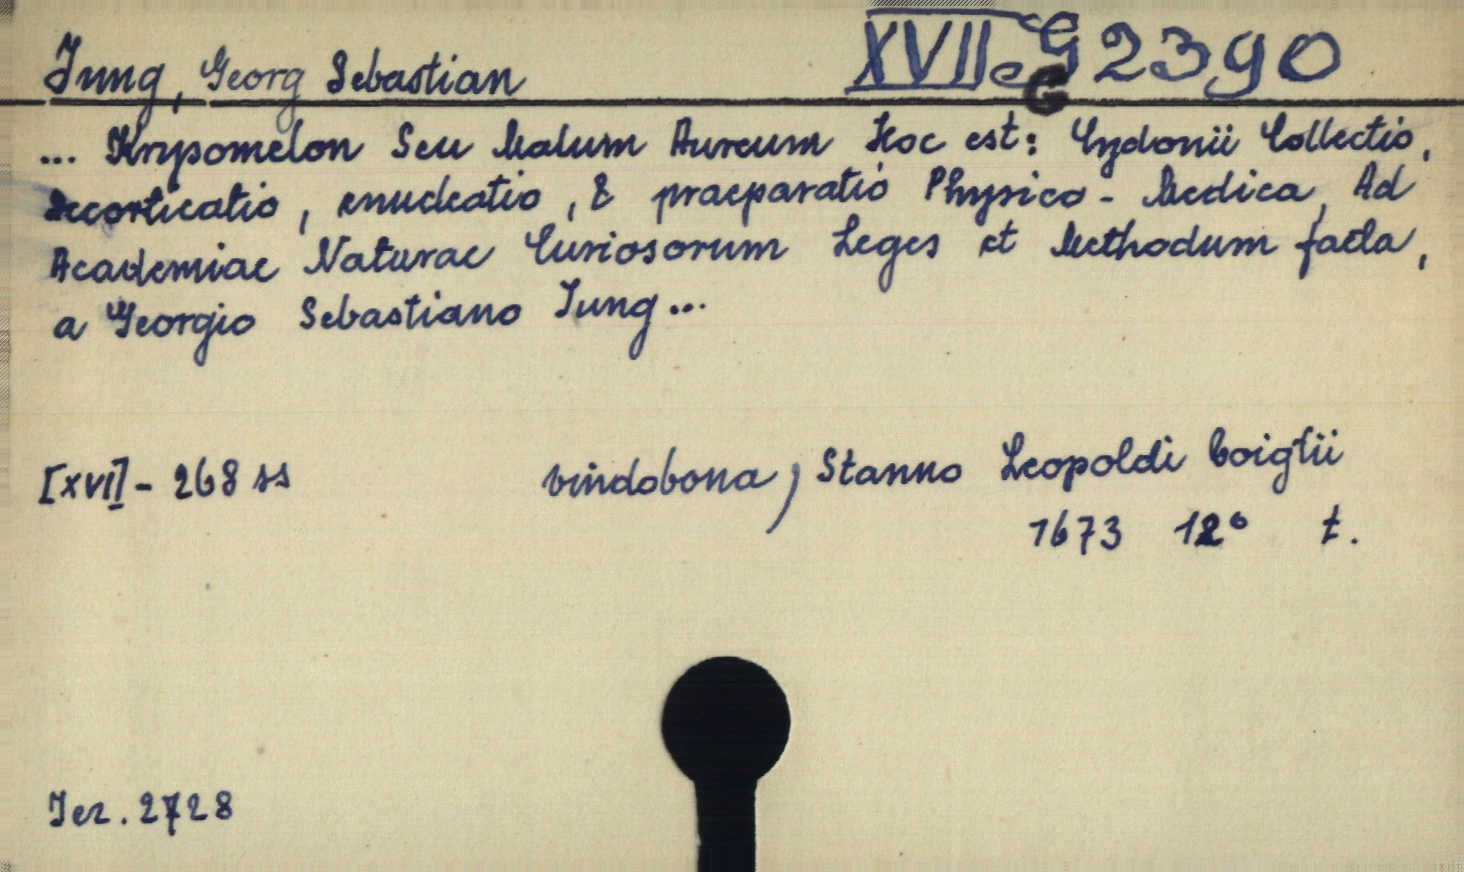 Jung, Georg Sebastian XVII c G 2390
... Krypomelon Seu Malum Aureum Hoc est: Cydonii Collectio,
decorticatio, enucleatio, & praeparatio Physico - Medica, Ad
Academiae Naturae Curiosorum Leges et Methodum facta,
a Georgio Sebastiano Jung...
[XVI] - 268 ss vindobona, Stanno Leopoldi Voigtii
1673 12° t.
Jez. 2728